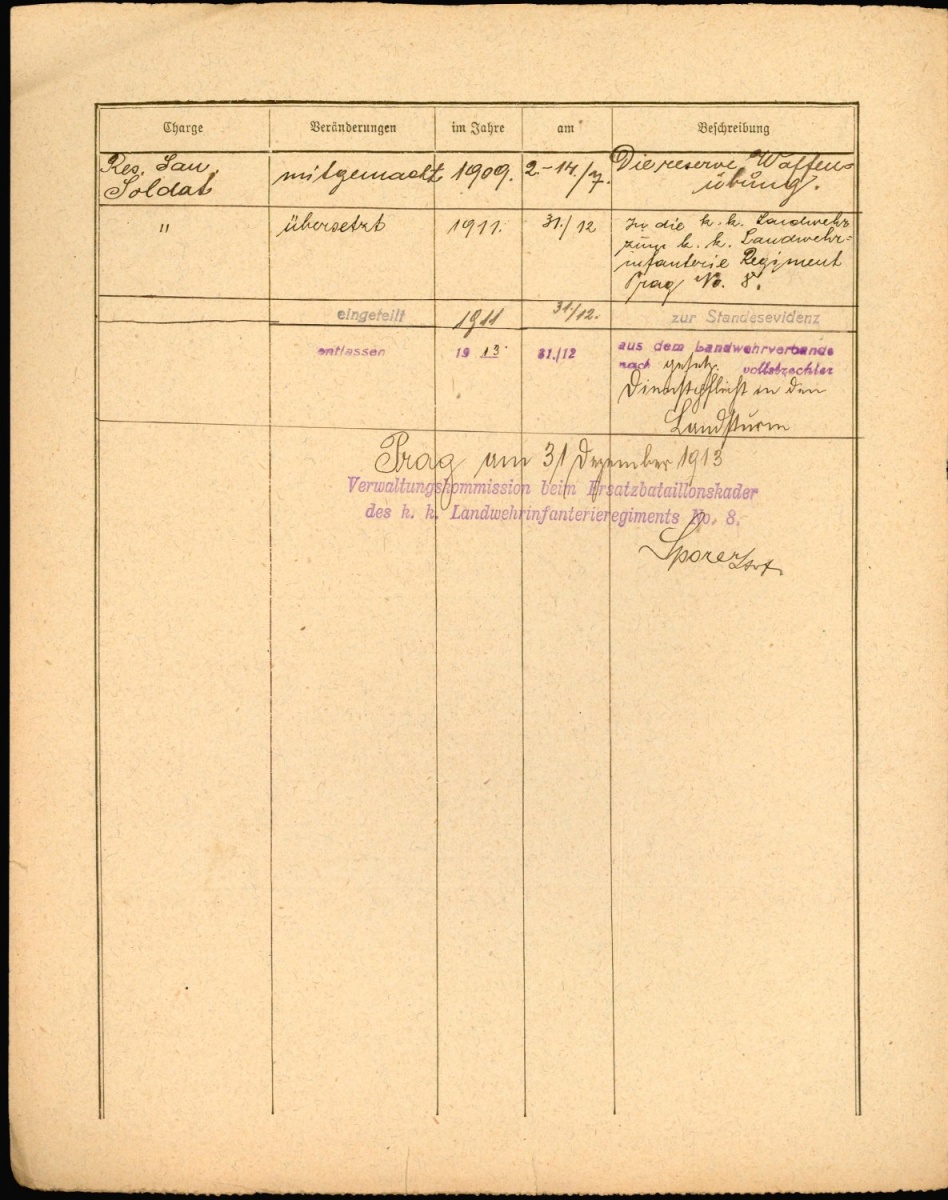 Charge Veränderungen im Jahre am Beschreibung
Res. San. mitgemacht 1909. 2-14/7. Die reserve Waffen=
Soldat übung.
" übersetzt 1911. 31./12 In die k. k. Landwehr
zum k. k. Landwehr=
infanterie Regiment
Prag No. 8.
eingeteilt 1911 31/12. zur Standesevidenz
entlassen 1913 31./12 aus dem Landwehrverbande
nach gesetz. vollstreckter
Dienstpflicht in den
Landsturm
Prag am 31/Dezember 1913
Verwaltungskommission beim Ersatzbataillonskader
des k. k. Landwehrinfanterieregiments No. 8.